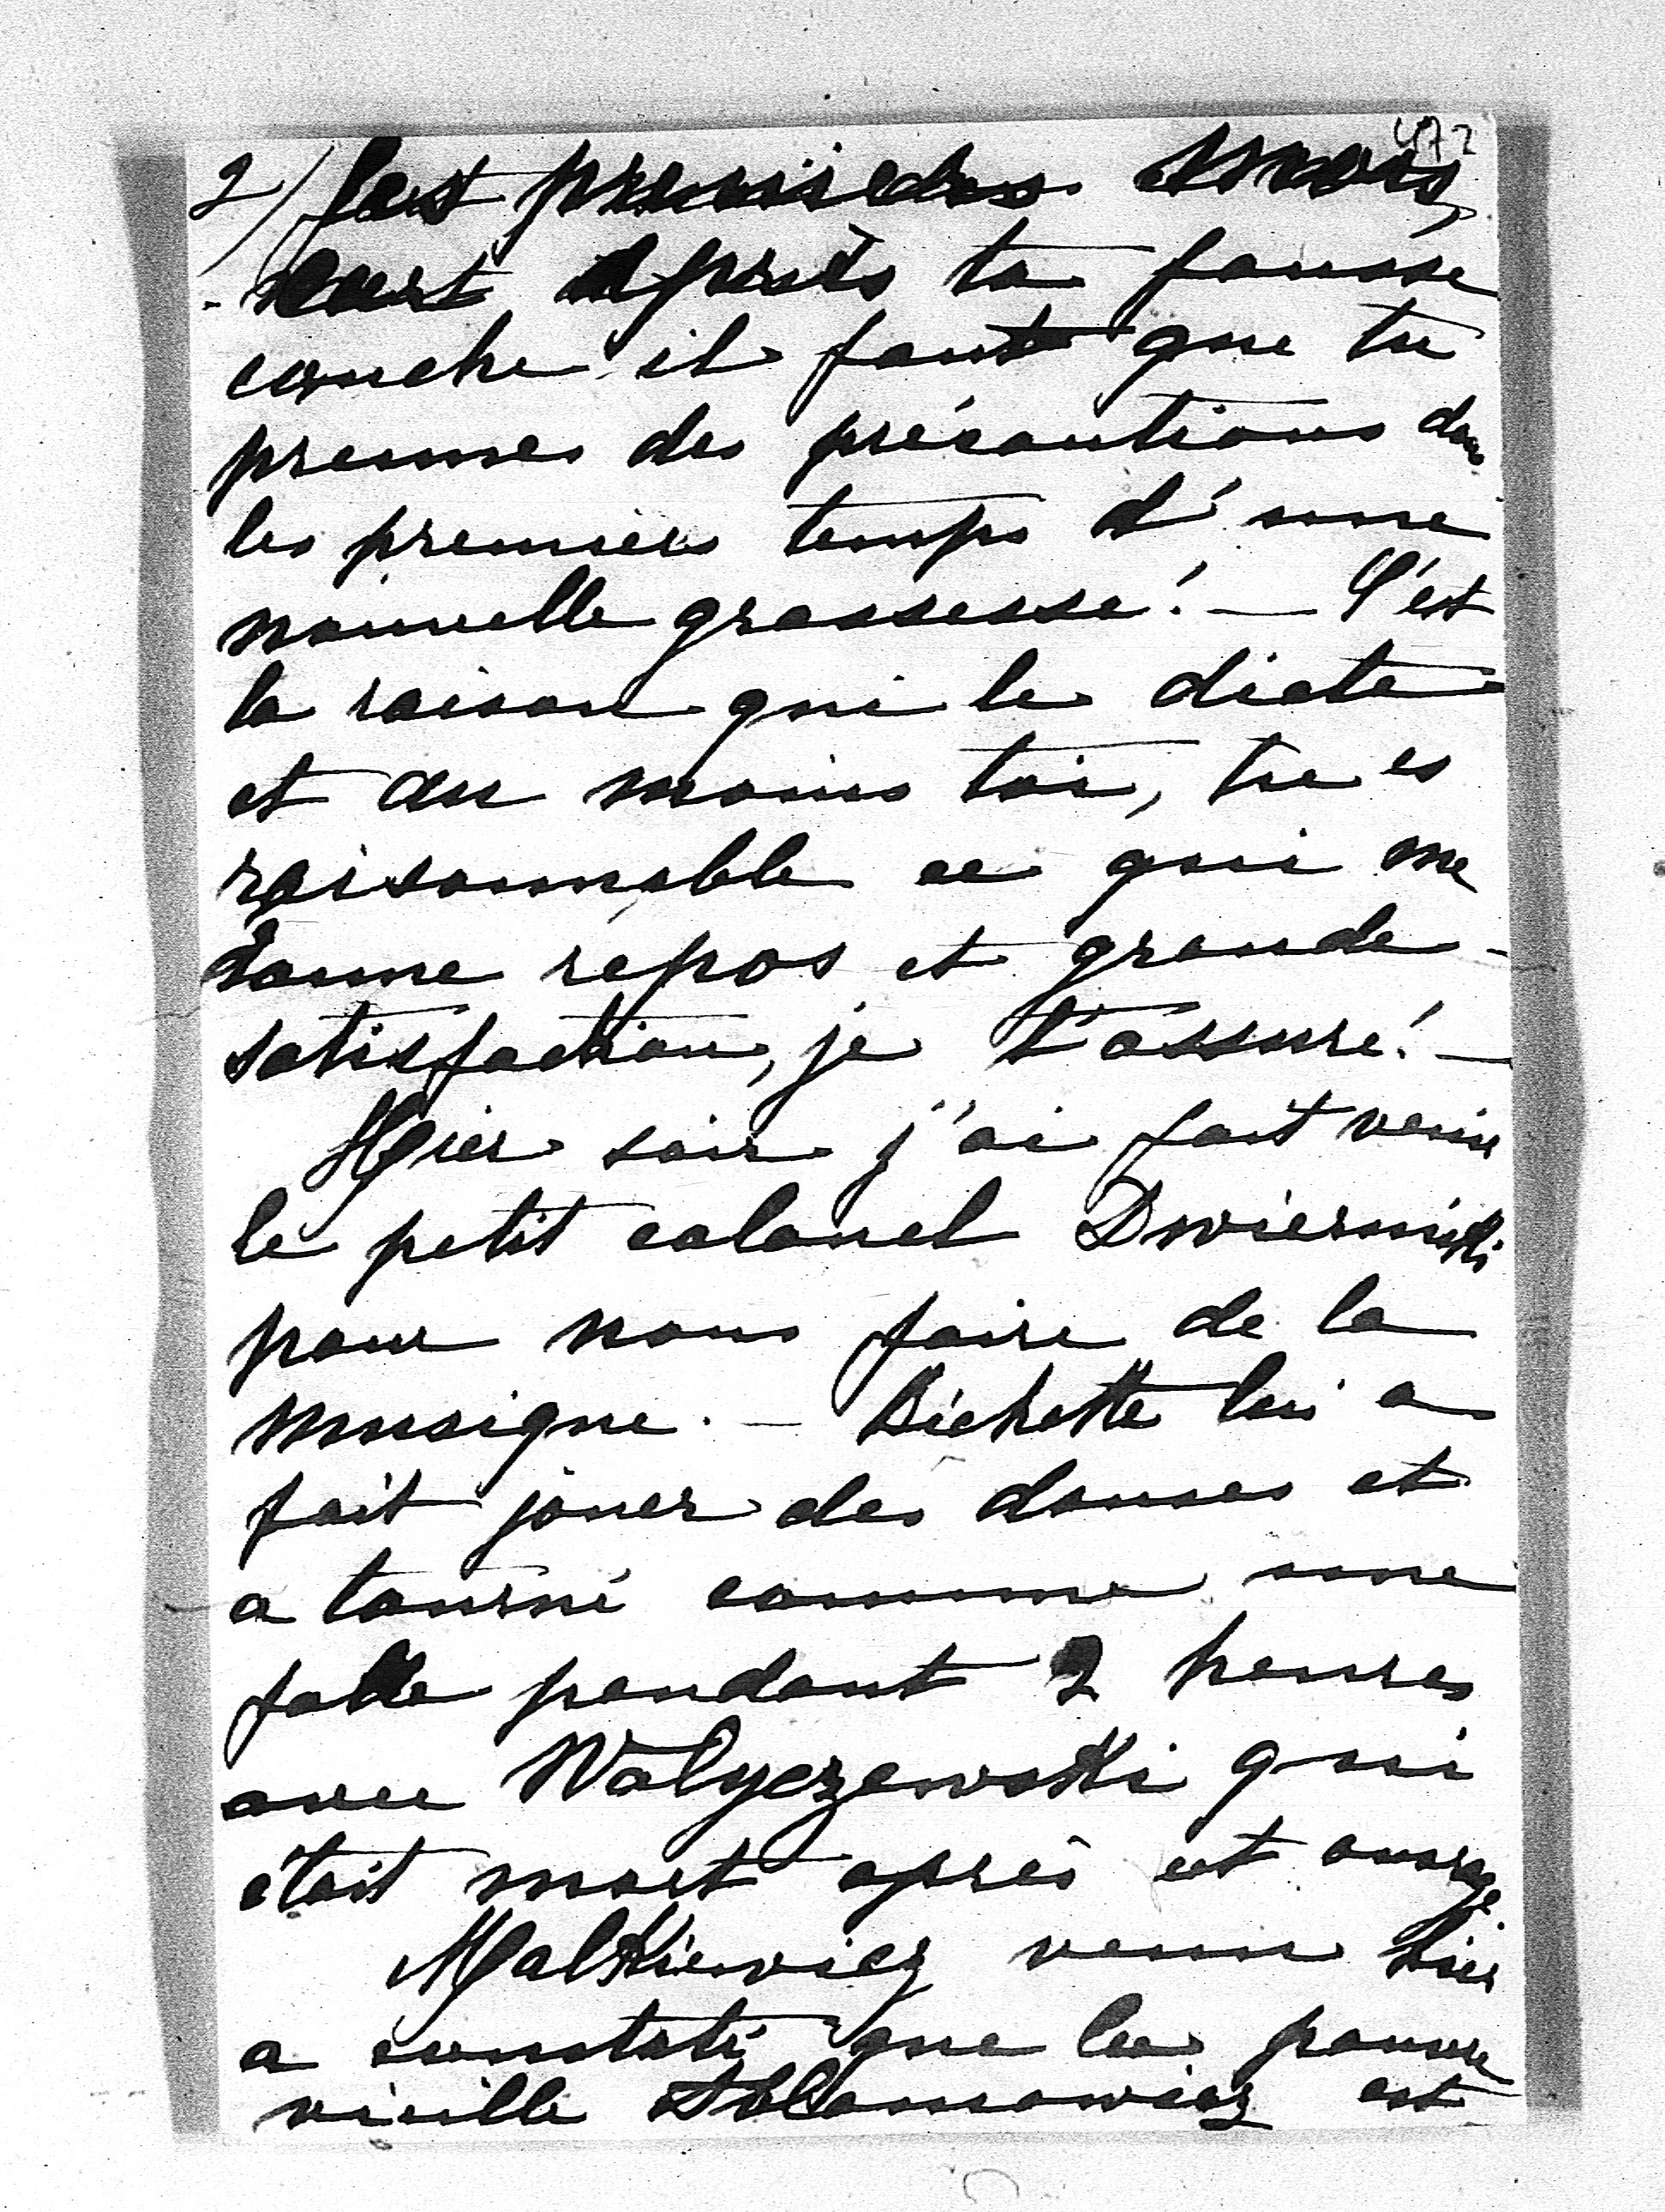 472
2/ les premiers mois,
après ta fausse
couche il faut que tu
prennes des précautions dans
les premiers temps d'une
nouvelle grossesse! — C'est
la raison qui le dicte
et au moins toi, tu es
raisonnable ce qui me
donne repos et grande
satisfaction, je t'assure! —
Hier soir j'ai fait venir
le petit colonel Dwiernicki
pour nous faire de la
musique. — Bichette lui a
fait jouer des danses et
a tourné comme une
folle pendant 2 heures
avec Walyczewski qui
était mort après cet ouvrage.
Malkiewicz venu hier
a constaté que la pauvre
vieille est